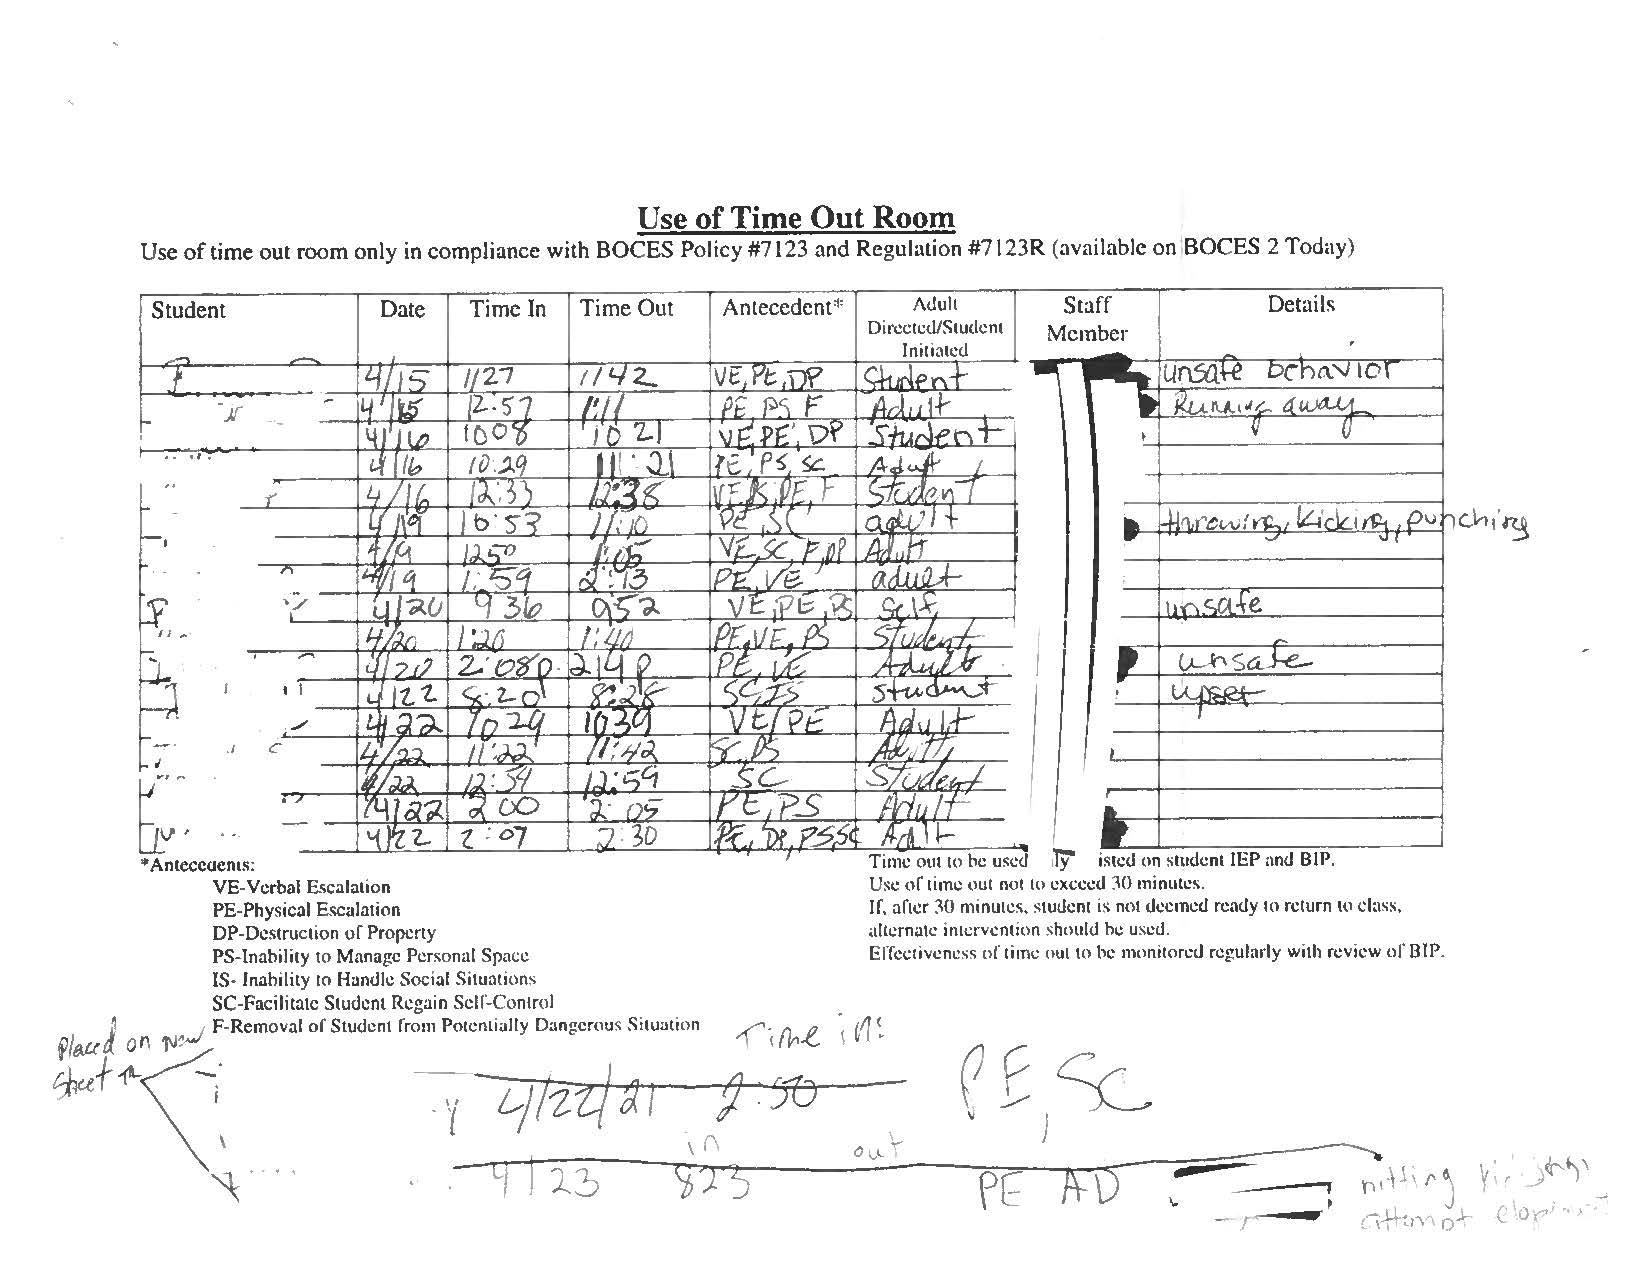 Use of Time Out Room
Use of time out room only in compliance with BOCES Policy #7123 and Regulation #7123R (available on BOCES 2 Today)
Student Date Time In Time Out Antecedent* Adult Directed/Student Initiated Staff Member Details
4/15 1127 1142 VE, PE, DP Student unsafe behavior
4/15 12:57 1:11 PE, PS F Adult Running away
4/16 1008 1021 VE, PE, DP Student
4/16 10:29 11:21 PE, PS, SC Adult
4/16 12:33 12:38 Student
4/19 10:53 11:10 PE, SC adult throwing, kicking, punching
4/19 1250 1:05 VE, SC, F, DP Adult
4/19 1:59 2:13 PE, VE adult
4/20 936 952 VE, PE, PS Self, unsafe
4/20 1:20 1:40 PE, VE, PS Student
4/20 2:08p 214p PE, VE Adult unsafe
4/22 8:20 8:28 SC, IS student upset
4/22 1029 1039 VE/PE Adult
4/22 11:22 11:42 SC, PS Adult
4/22 12:54 12:59 SC Student
4/22 2:00 2:05 PE, PS Adult
4/22 2:07 2:30 PE, DP, PS SC Adult
*Antecedents:
VE-Verbal Escalation
PE-Physical Escalation
DP-Destruction of Property
PS-Inability to Manage Personal Space
IS- Inability to Handle Social Situations
SC-Facilitate Student Regain Self-Control
F-Removal of Student from Potentially Dangerous Situation
Time out to be used isted on student IEP and BIP.
Use of time out not to exceed 30 minutes.
If, after 30 minutes, student is not deemed ready to return to class,
alternate intervention should be used.
Effectiveness of time out to be monitored regularly with review of BIP.
Placed on New
Sheet
Time in:
y 4/22/21 2:50 PE, SC
in out
4/23 823 PE AD
hitting
attempt